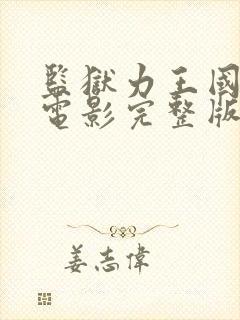 監獄力王國語
電影完整版
姜志偉